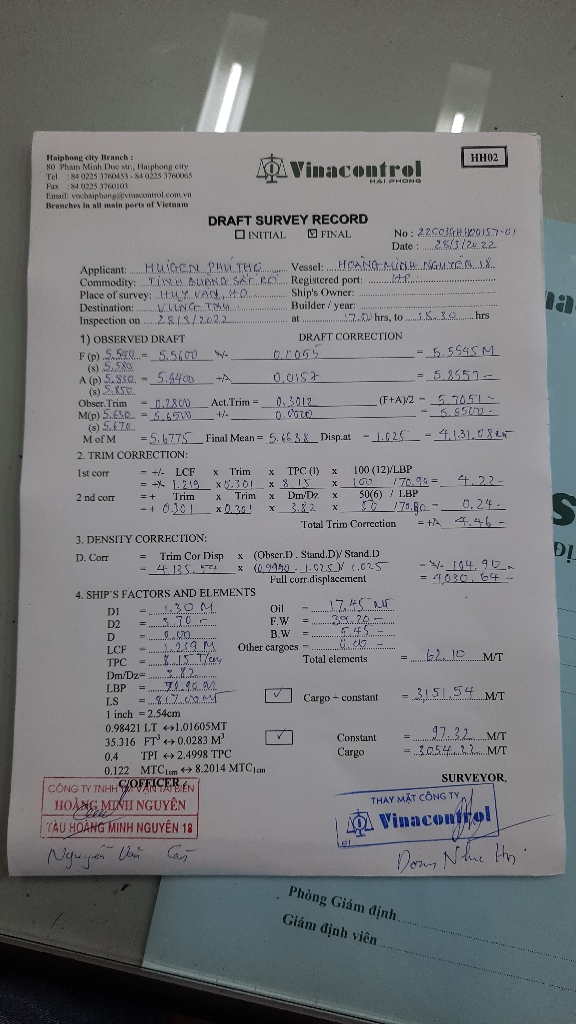 Haiphong city Branch :
80 Pham Minh Duc str., Haiphong city
Tel : 84 0225 3760453 - 84 0225 3760065
Fax : 84 0225 3760103
Email: vnchaiphong@vinacontrol.com.vn
Branches in all main ports of Vietnam
Vinacontrol
HAI PHONG
HH02
DRAFT SURVEY RECORD
INITIAL FINAL
No :
Date : 28/3/2022
Applicant: HUIGEN PHÚ THỌ Vessel: HOÀNG MINH NGUYÊN 18
Commodity: TINH QUẶNG SẮT Registered port: HP
Place of survey: HUY VĂN, HD Ship's Owner:
Destination: VŨNG TÀU Builder / year:
Inspection on 28/3/2022 at 17.00 hrs, to 18.30 hrs
1) OBSERVED DRAFT DRAFT CORRECTION
F (p) 5.540 = 5.5600 +/- 0.0055 = 5.5545 M
(s) 5.580
A (p) 5.830 = 5.8400 +/- 0.0157 = 5.8557
(s) 5.850
Obser.Trim = 0.2800 Act.Trim = 0.3012 (F+A)/2 = 5.7051
M(p) 5.630 = 5.6500 +/- 0.0000 = 5.6500
(s) 5.670
M of M = 5.6775 Final Mean = 5.6638 Disp.at = 1.025 = 4,131.08
2. TRIM CORRECTION:
1st corr = +/- LCF x Trim x TPC (I) x 100 (12)/LBP
= +/- 1.219 x 0.301 x 8.15 x 100 /70.90 = 4.22
2 nd corr = + Trim x Trim x Dm/Dz x 50(6) / LBP
= + 0.301 x 0.301 x 3.82 x 50 /70.90 = 0.24
Total Trim Correction = +/- 4.46
3. DENSITY CORRECTION:
D. Corr = Trim Cor Disp x (Obser.D - Stand.D)/ Stand.D
= 4,135.54 x (0.9990 - 1.025)/ 1.025 = +/- 104.90
Full corr.displacement = 4,030.64
4. SHIP'S FACTORS AND ELEMENTS
D1 = 1.30 M Oil = 17.45 MT
D2 = 3.70 F.W = 39.20
D = 0.00 B.W = 5.45
LCF = 1.219 M Other cargoes = 0.00
TPC = 8.15 T/cm Total elements = 62.10 M/T
Dm/Dz= 3.82
LBP = 70.90 M Cargo + constant = 3,151.54 M/T
LS = 817.00 MT
1 inch = 2.54cm
0.98421 LT ↔1.01605MT Constant = 97.32 M/T
35.316 FT³ ↔0.0283 M³ Cargo = 3054.22 M/T
0.4 TPI ↔2.4998 TPC
0.122 MTC1cm ↔ 8.2014 MTC1cm
C/OFFICER SURVEYOR,
CÔNG TY TNHH VẬN TẢI BIỂN
HOÀNG MINH NGUYÊN
TÀU HOÀNG MINH NGUYÊN 18
THAY MẶT CÔNG TY
Vinacontrol
Nguyễn Văn
Phòng Giám định
Giám định viên